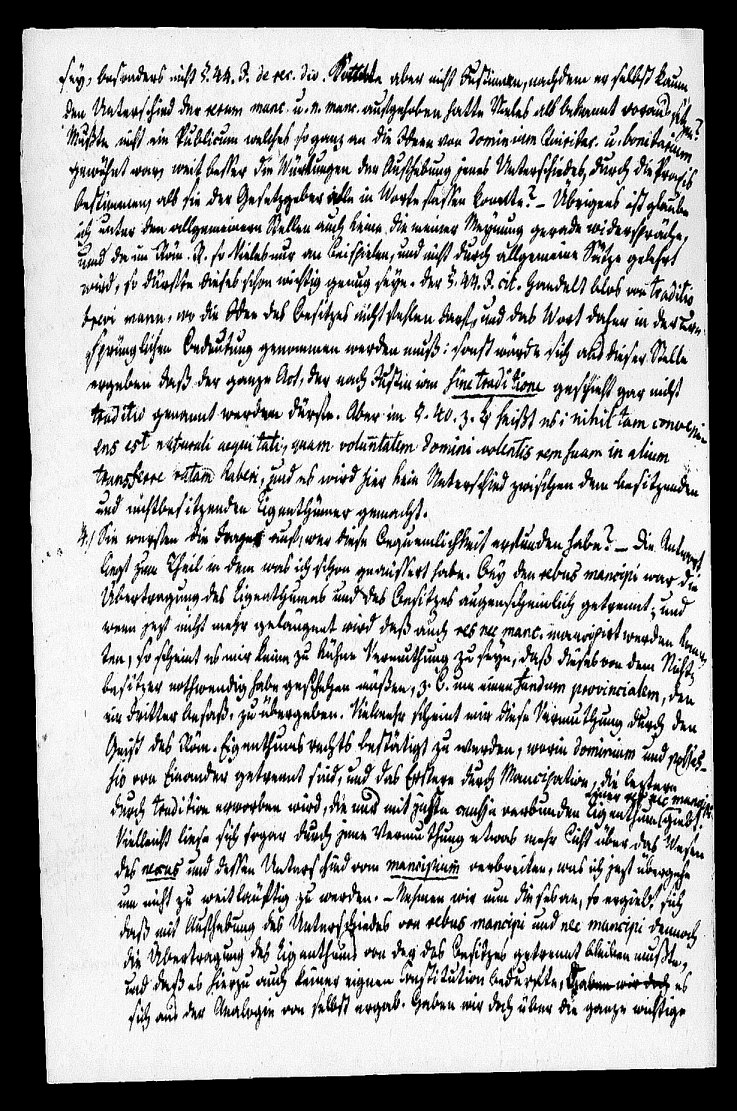 sey, besonders nicht §. 44. J. de rec. div. Konnte aber nicht Justinian, nachdem er selbst kaum
den Unterschied der rerum manc. u. n. manc. aufgehoben hatte Vieles als bekannt voraus setzen?
Mußte nicht ein Publicum welches so ganz an die Ideen von dominium Quiritar. u. bonitarium
gewöhnt war, weit besser die Würkungen der Aufhebung jenes Unterschiedes, durch die Praxis
bestimmen, als sie der Gesetzgeber alle in Worte fassen konnte? – Übrigens ist glaube
ich unter den allgemeinern Stellen auch keine die meiner Meynung gerade widerspräche,
und da im Röm. R. so Vieles nur an Beispielen, und nicht durch allgemeine Sätze gelehrt
wird, so dürfte dieses schon wichtig genug seyn. Der §. 44. J. cit. handelt blos von traditio
brevi manu, wo die Idee des Besitzes nicht fehlen darf, und das Wort daher in der ur-
sprünglichen Bedeutung genommen werden muß: sonst würde sich aus dieser Stelle
ergeben daß der ganze Act, der nach Justinian sine traditione geschieht gar nicht
traditio genannt werden dürfte. Aber im §. 40. z. B. heißt es: nihil tam conveni-
ens est naturali aequitati, quam voluntatem domini volentis rem suam in alium
transferre ratam haberi, und es wird hier kein Unterschied zwischen dem besitzenden
und nichtbesitzenden Eigenthümer gemacht.
4.) Sie werfen die Frage auf, wer diese Bequemlichkeit erfunden habe? – Die Antwort
liegt zum Theil in dem was ich schon geäussert habe. Bey den rebus mancipi war die
Übertragung des Eigenthums und des Besitzes augenscheinlich getrennt, und
wenn jetzt nicht mehr geläugnet wird daß auch res nec manc. mancipirt werden konn-
ten, so scheint es mir keine zu kühne Vermuthung zu seyn, daß dieses von dem Nicht-
besitzer nothwendig habe geschehen müßen, z. B. um einen fundum provincialem, den
ein Dritter besaß, zu übergeben. Vielmehr scheint mir diese Vermuthung durch den
Geist des Röm. Eigenthumsrechts bestätigt zu werden, worin dominium und posses-
sio von einander getrennt sind, und das Erstere durch Mancipation, die letztere
durch tradition erworben wird, die nur mit justa causa verbunden Eigenthum einer res nec mancipi giebt.
Vielleicht liese sich sogar durch jene Vermuthung etwas mehr Licht über das Wesen
des nexus und dessen Unterschied vom mancipium verbreiten, was ich jetzt übergehe
um nicht zu weitläuftig zu werden. – Nehmen wir nun dieses an, so ergiebt sich
daß mit Aufhebung des Unterschiedes von rebus mancipi und nec mancipi dennoch
die Übertragung des Eigenthums von der des Besitzes getrennt bleiben mußte,
und daß es hierzu auch keiner eignen Constitution bedurfte, haben wir doch es
sich aus der Analogie von selbst ergab. Haben wir doch über die ganze wichtige